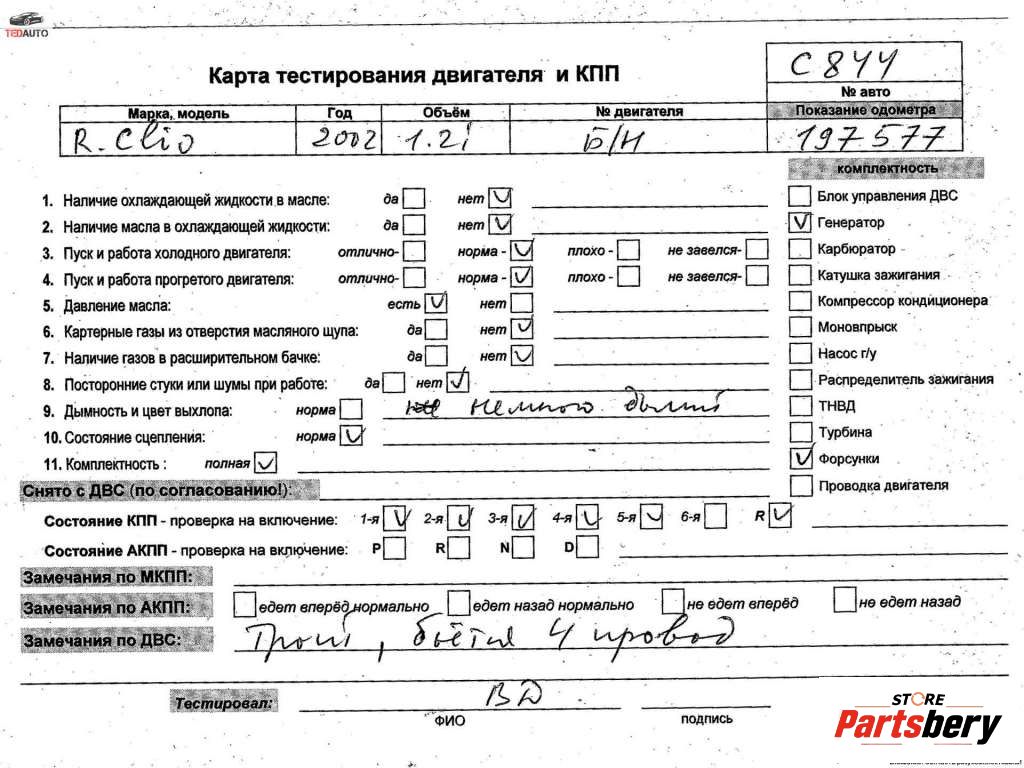 TEDAUTO
Карта тестирования двигателя и КПП
С844
№ авто
Марка, модель Год Объём № двигателя Показание одометра
R. Clio 2002 1.2i Б/Н 197577
комплектность
1. Наличие охлаждающей жидкости в масле: да нет
Блок управления ДВС
2. Наличие масла в охлаждающей жидкости: да нет
Генератор
3. Пуск и работа холодного двигателя: отлично- норма - плохо - не завелся-
Карбюратор
4. Пуск и работа прогретого двигателя: отлично- норма - плохо - не завелся-
Катушка зажигания
5. Давление масла: есть нет
Компрессор кондиционера
6. Картерные газы из отверстия масляного щупа: да нет
Моновпрыск
7. Наличие газов в расширительном бачке: да нет
Насос г/у
8. Посторонние стуки или шумы при работе: да нет
Распределитель зажигания
9. Дымность и цвет выхлопа: норма немного дымит
ТНВД
10. Состояние сцепления: норма
Турбина
11. Комплектность : полная
Форсунки
Снято с ДВС (по согласованию!):
Проводка двигателя
Состояние КПП - проверка на включение: 1-я 2-я 3-я 4-я 5-я 6-я R
Состояние АКПП - проверка на включение: P R N D
Замечания по МКПП:
Замечания по АКПП: едет вперёд нормально едет назад нормально не едет вперёд не едет назад
Замечания по ДВС: Троит, бьётся 4 провод
Тестировал: ВД
ФИО подпись
STORE
Partsbery